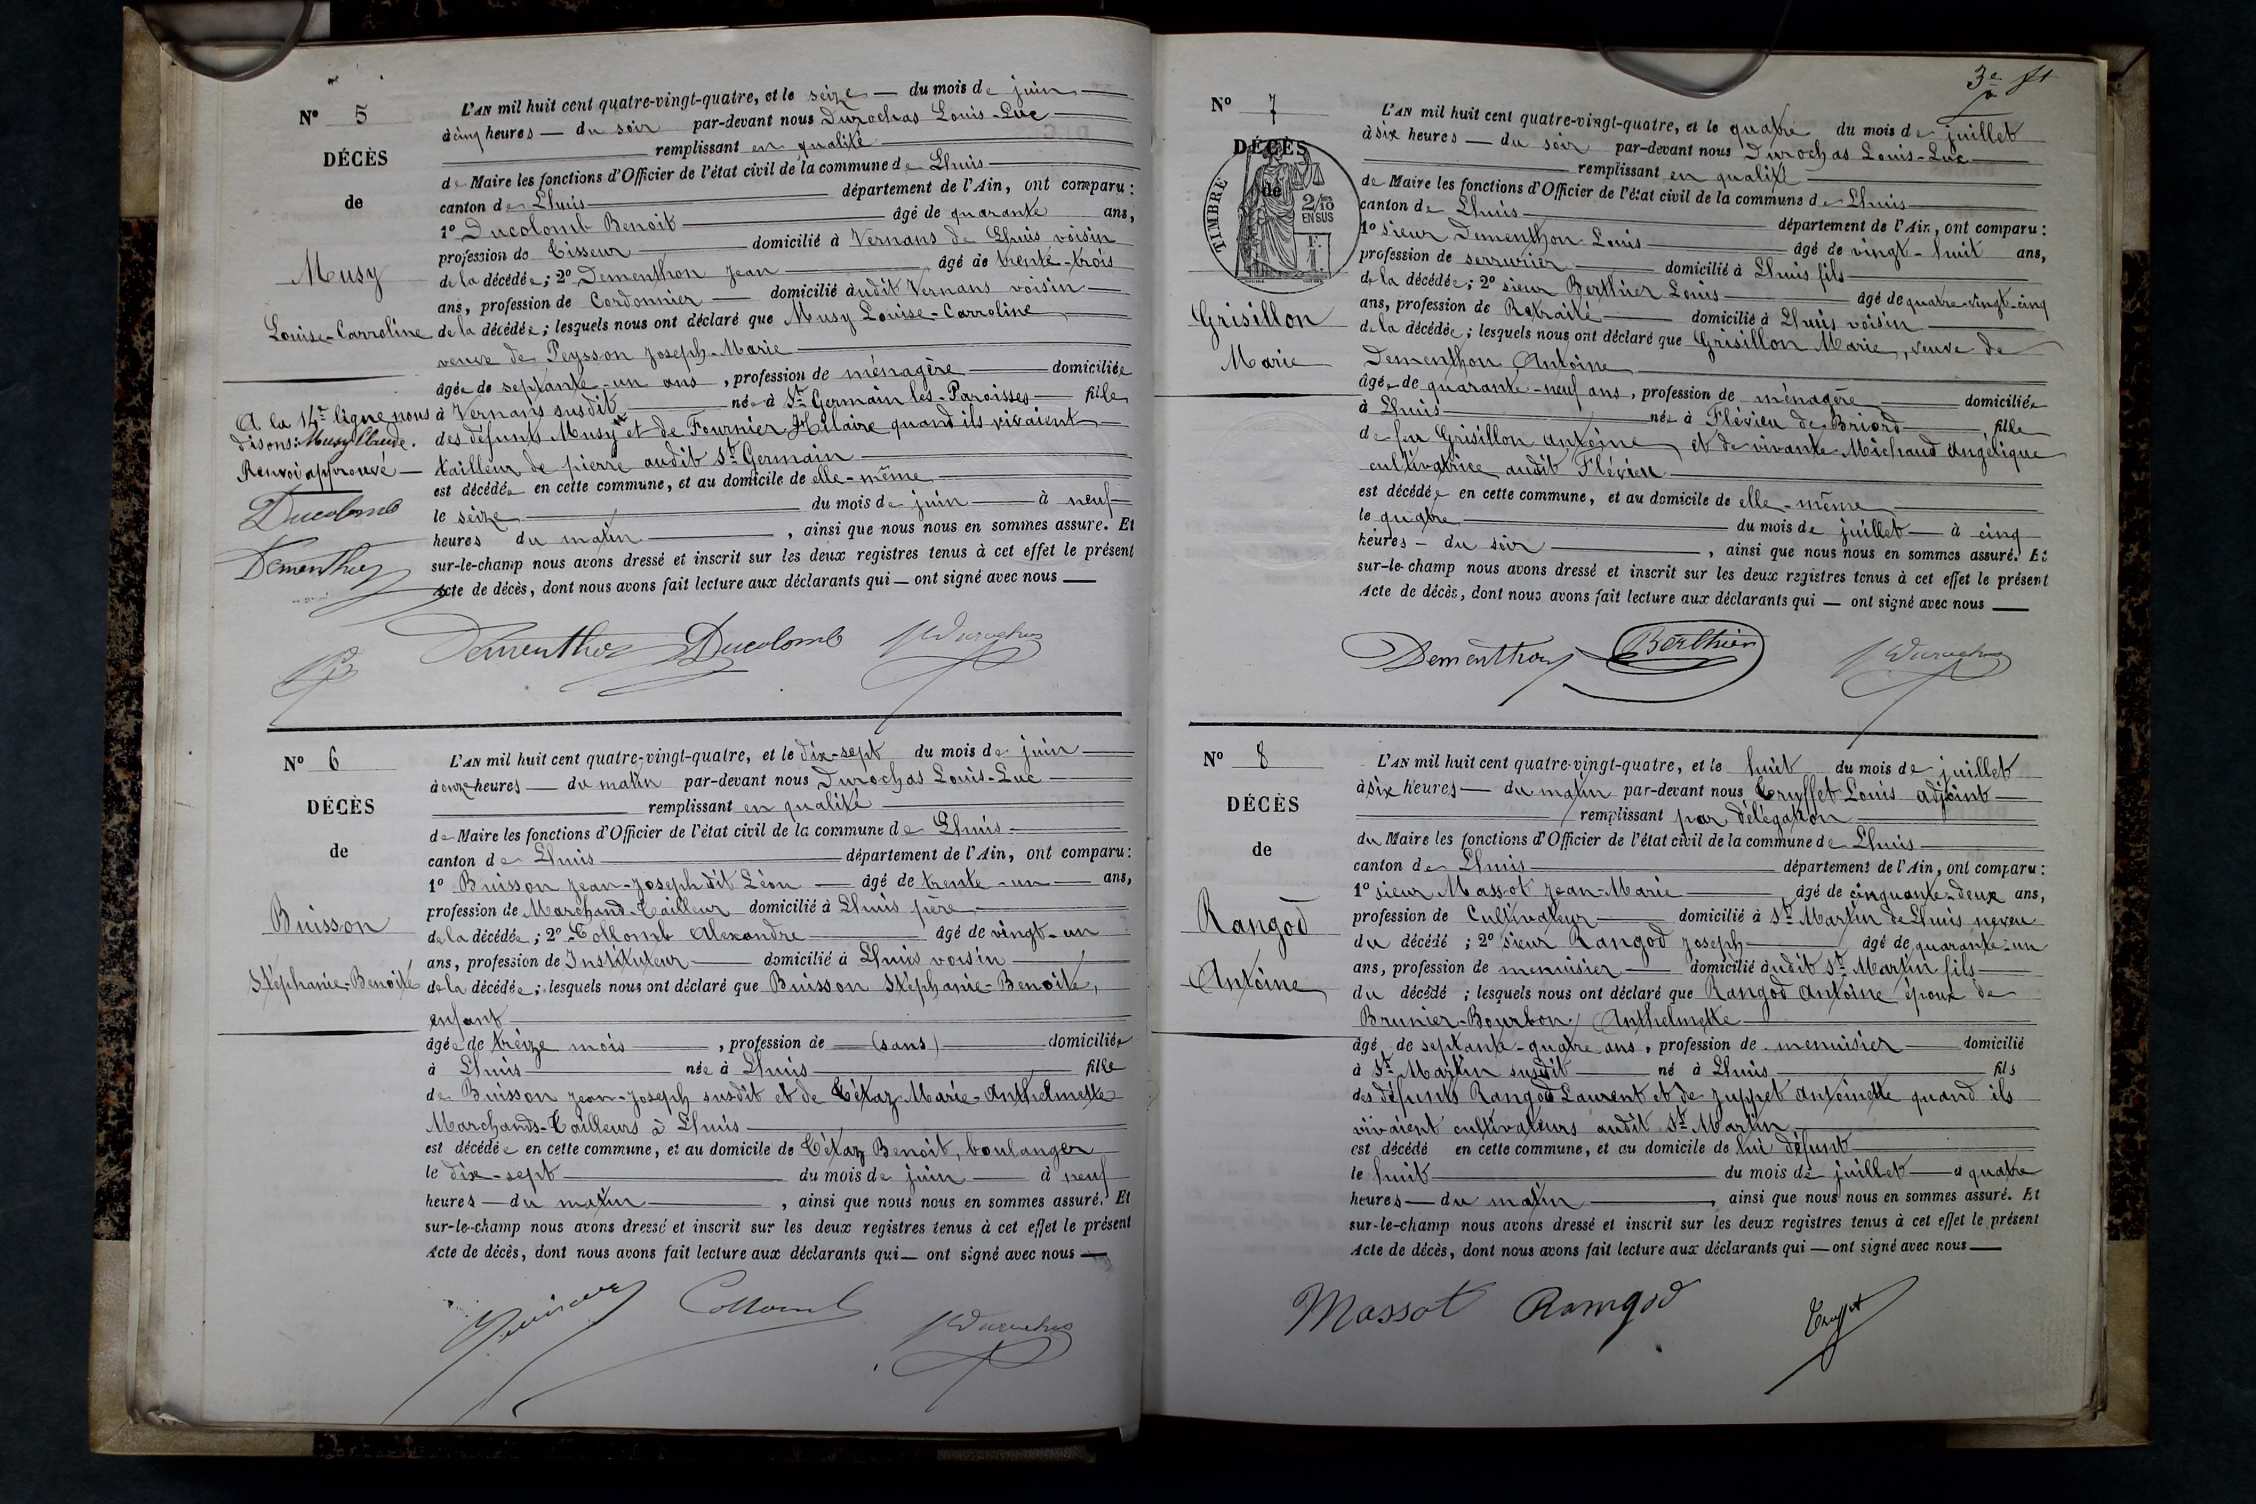 N° 5
DÉCÈS
de
Musy
Louise-Carroline
A la 14e ligne nous
disons: Musy Claude.
Renvoi approuvé —
Ducolomb
Dementhon
L'AN mil huit cent quatre-vingt-quatre, et le seize — du mois de juin
à cinq heures — du soir par-devant nous Durochas Louis-Luc
remplissant en qualité
de Maire les fonctions d'Officier de l'état civil de la commune de Lhuis
canton de Lhuis département de l'Ain, ont comparu:
1° Ducolomb Benoit âgé de quarante ans,
profession de Tisseur domicilié à Vernans de Lhuis voisin
de la décédée; 2° Dementhon Jean âgé de trente-trois
ans, profession de Cordonnier domicilié audit Vernans voisin
de la décédée; lesquels nous ont déclaré que Musy Louise-Carroline
veuve de Peysson Joseph-Marie
âgée de septante-un ans, profession de ménagère domiciliée
à Vernans susdit née à St Germain les-Paroisses fille
des défunts Musy et de Fournier Hilaire quand ils vivaient
tailleur de pierre audit St Germain
est décédée en cette commune, et au domicile de elle-même
le seize du mois de juin à neuf
heures du matin, ainsi que nous nous en sommes assuré. Et
sur-le-champ nous avons dressé et inscrit sur les deux registres tenus à cet effet le présent
Acte de décès, dont nous avons fait lecture aux déclarants qui — ont signé avec nous
Dementhon Ducolomb Durochas
N° 6
DÉCÈS
de
Buisson
Stéphanie-Benoité
L'AN mil huit cent quatre-vingt-quatre, et le dix-sept du mois de juin
à onze heures — du matin par-devant nous Durochas Louis-Luc
remplissant en qualité
de Maire les fonctions d'Officier de l'état civil de la commune de Lhuis
canton de Lhuis département de l'Ain, ont comparu:
1° Buisson Jean-Joseph dit Léon âgé de trente-un ans,
profession de Marchand-Tailleur domicilié à Lhuis père
de la décédée; 2° Collomb Alexandre âgé de vingt-un
ans, profession de Instituteur domicilié à Lhuis voisin
de la décédée; lesquels nous ont déclaré que Buisson Stéphanie-Benoite,
enfant
âgée de treize mois, profession de (sans) domiciliée
à Lhuis née à Lhuis fille
de Buisson Jean-Joseph susdit et de Tétaz Marie-Anthelmette
Marchands-Tailleurs à Lhuis
est décédée en cette commune, et au domicile de Tétaz Benoit, boulanger
le dix-sept du mois de juin à neuf
heures — du matin, ainsi que nous nous en sommes assuré. Et
sur-le-champ nous avons dressé et inscrit sur les deux registres tenus à cet effet le présent
Acte de décès, dont nous avons fait lecture aux déclarants qui — ont signé avec nous
Buisson Collomb Durochas
3e
N° 7
DÉCÈS
de
TIMBRE
2/10 EN SUS
Grisillon
Marie
L'AN mil huit cent quatre-vingt-quatre, et le quatre du mois de juillet
à six heures — du soir par-devant nous Durochas Louis-Luc
remplissant en qualité
de Maire les fonctions d'Officier de l'état civil de la commune de Lhuis
canton de Lhuis département de l'Ain, ont comparu:
1° sieur Dementhon Louis âgé de vingt-huit ans,
profession de serrurier domicilié à Lhuis fils
de la décédée; 2° sieur Berthier Louis âgé de quatre-vingt-cinq
ans, profession de Retraité domicilié à Lhuis voisin
de la décédée; lesquels nous ont déclaré que Grisillon Marie, veuve de
Dementhon Antoine
âgée de quarante-neuf ans, profession de ménagère domiciliée
à Lhuis née à Flévieu de Briord fille
de feu Grisillon Antoine et de vivante Michaud Angélique
cultivatrice audit Flévieu
est décédée en cette commune, et au domicile de elle-même
le quatre du mois de juillet à cinq
heures — du soir, ainsi que nous nous en sommes assuré. Et
sur-le-champ nous avons dressé et inscrit sur les deux registres tenus à cet effet le présent
Acte de décès, dont nous avons fait lecture aux déclarants qui — ont signé avec nous
Dementhon Berthier Durochas
N° 8
DÉCÈS
de
Rangod
Antoine
L'AN mil huit cent quatre-vingt-quatre, et le huit du mois de juillet
à six heures — du matin par-devant nous Truffet Louis adjoint
remplissant par délégation
du Maire les fonctions d'Officier de l'état civil de la commune de Lhuis
canton de Lhuis département de l'Ain, ont comparu:
1° sieur Massot Jean-Marie âgé de cinquante-deux ans,
profession de Cultivateur domicilié à St Martin de Lhuis neveu
du décédé; 2° sieur Rangod Joseph âgé de quarante-un
ans, profession de menuisier domicilié audit St Martin fils
du décédé; lesquels nous ont déclaré que Rangod Antoine époux de
Brunier-Bourbon Anthelmette
âgé de septante-quatre ans, profession de menuisier domicilié
à St Martin susdit né à Lhuis fils
des défunts Rangod Laurent et de Juppet Antoinette quand ils
vivaient cultivateurs audit St Martin
est décédé en cette commune, et au domicile de lui défunt
le huit du mois de juillet à quatre
heures — du matin, ainsi que nous nous en sommes assuré. Et
sur-le-champ nous avons dressé et inscrit sur les deux registres tenus à cet effet le présent
Acte de décès, dont nous avons fait lecture aux déclarants qui — ont signé avec nous
Massot Rangod Truffet